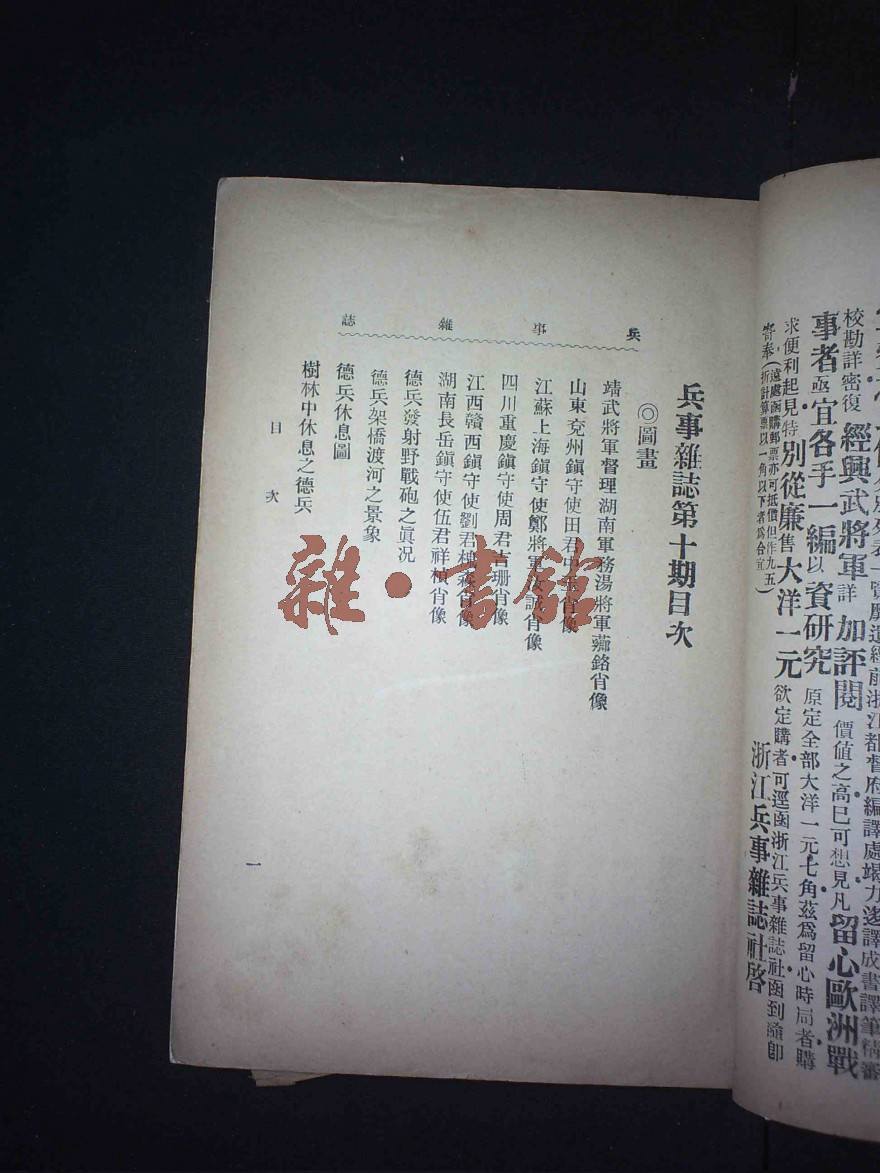 前浙江都督府編譯處竭力迻譯成書譯筆精審
校勘詳密復經興武將軍詳加評閱價值之高已可想見凡留心歐洲戰
事者亟宜各手一編以資研究原定全部大洋一元七角茲爲留心時局者購
求便利起見特別從廉售大洋一元欲定購者可逕函浙江兵事雜誌社函到隨卽
寄奉（遠處函購郵票亦可抵價但作九五折計算票以一角以下者爲合宜）
浙江兵事雜誌社啓
兵事雜誌
兵事雜誌第十期目次
◎圖畫
靖武將軍督理湖南軍務湯將軍薌銘肖像
山東兗州鎭守使田君中玉肖像
江蘇上海鎭守使鄭將軍汝成肖像
四川重慶鎭守使周君吉珊肖像
江西贛西鎭守使劉君森肖像
湖南長岳鎭守使伍君祥楨肖像
德兵發射野戰砲之眞况
德兵架橋渡河之景象
德兵休息圖
樹林中休息之德兵
目次
一
雜·書館